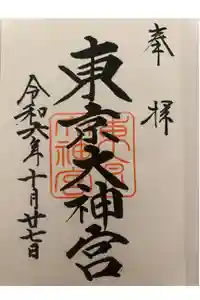 奉拝
東京大神宮
令和六年十月廿七日
東京大神宮